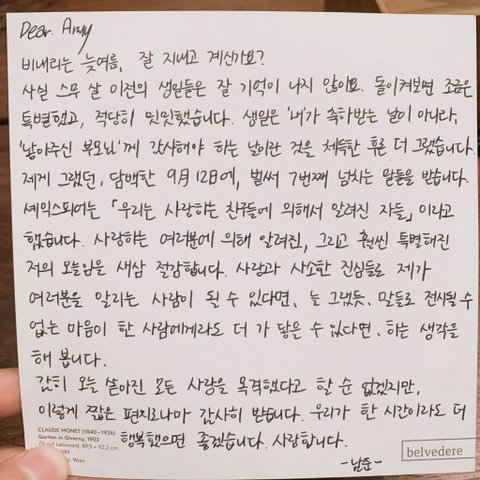 Dear. Army
비내리는 늦여름, 잘 지내고 계신가요?
사실 스무 살 이전의 생일들은 잘 기억이 나지 않아요. 돌이켜보면 조금은
특별했고, 적당히 밋밋했습니다. 생일은 '내'가 축하받는 날이 아니라,
'낳아주신 부모님'께 감사해야 하는 날이란 것을 체득한 후론 더 그랬습니다.
제게 그랬던, 담백한 9월 12일에, 벌써 7번째 넘치는 말들을 받습니다.
셰익스피어는 「우리는 사랑하는 친구들에 의해서 알려진 자들」이라고
했습니다. 사랑하는 여러분에 의해 알려진, 그리고 훨씬 특별해진
저의 오늘임을 새삼 절감합니다. 사랑과 사소한 진심들로 제가
여러분을 알리는 사람이 될 수 있다면, 늘 그랬듯, 말들로 전시될 수
없는 마음이 한 사람에게라도 더 가 닿을 수 있다면, 하는 생각을
해 봅니다.
감히 오늘 쏟아진 모든 사랑을 목격했다고 할 순 없겠지만,
이렇게 짧은 편지로나마 감사히 받습니다. 우리가 한 시간이라도 더
행복했으면 좋겠습니다. 사랑합니다.
-남준-
CLAUDE MONET (1840–1926)
Garten in Giverny, 1902
Leinwand, 89,5 × 92,3 cm
Wien
belvedere